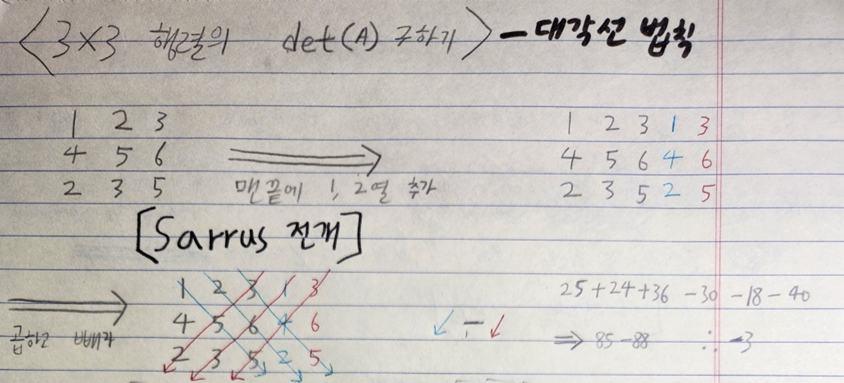 <3×3 행렬의 det(A) 구하기> - 대각선 법칙
1 2 3
4 5 6
2 3 5
⇒
맨 끝에 1, 2열 추가
1 2 3 1 3
4 5 6 4 6
2 3 5 2 5
[Sarrus 전개]
⇒
곱하고 빼자
1 2 3 1 3
4 5 6 4 6
2 3 5 2 5
↙ - ↙
25+24+36 -30 -18 - 40
⇒ 85-88 ∴ -3